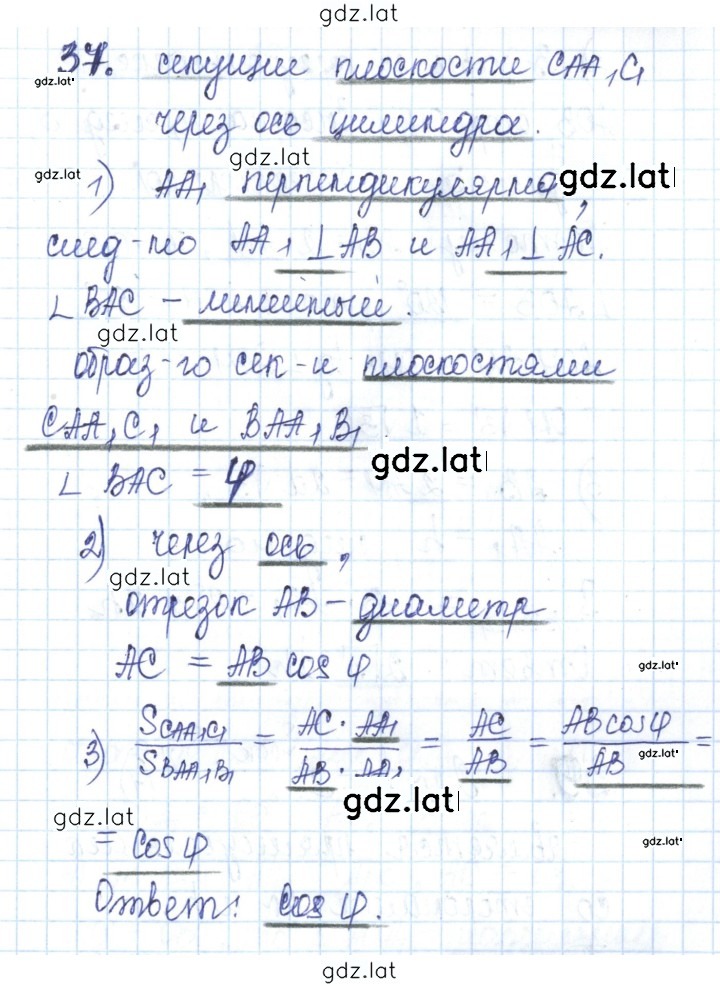 gdz.lat
37. секущие плоскости CAA₁C₁
gdz.lat
через ось цилиндра.
gdz.lat
gdz.lat
1) AA₁ перпендикулярна, gdz.lat
след-но AA₁ ⊥ AB и AA₁ ⊥ AC.
∠ BAC – линейный.
gdz.lat
образ-го сек-и плоскостями
CAA₁C₁ и BAA₁B₁
gdz.lat
∠ BAC = φ
2) через ось,
gdz.lat
отрезок AB – диаметр
AC = AB cos φ
gdz.lat
3) S_CAA₁C₁ / S_BAA₁B₁ = AC · AA₁ / AB · AA₁ = AC / AB = AB cos φ / AB =
gdz.lat
gdz.lat
gdz.lat
= cos φ
gdz.lat
Ответ: cos φ.
gdz.lat